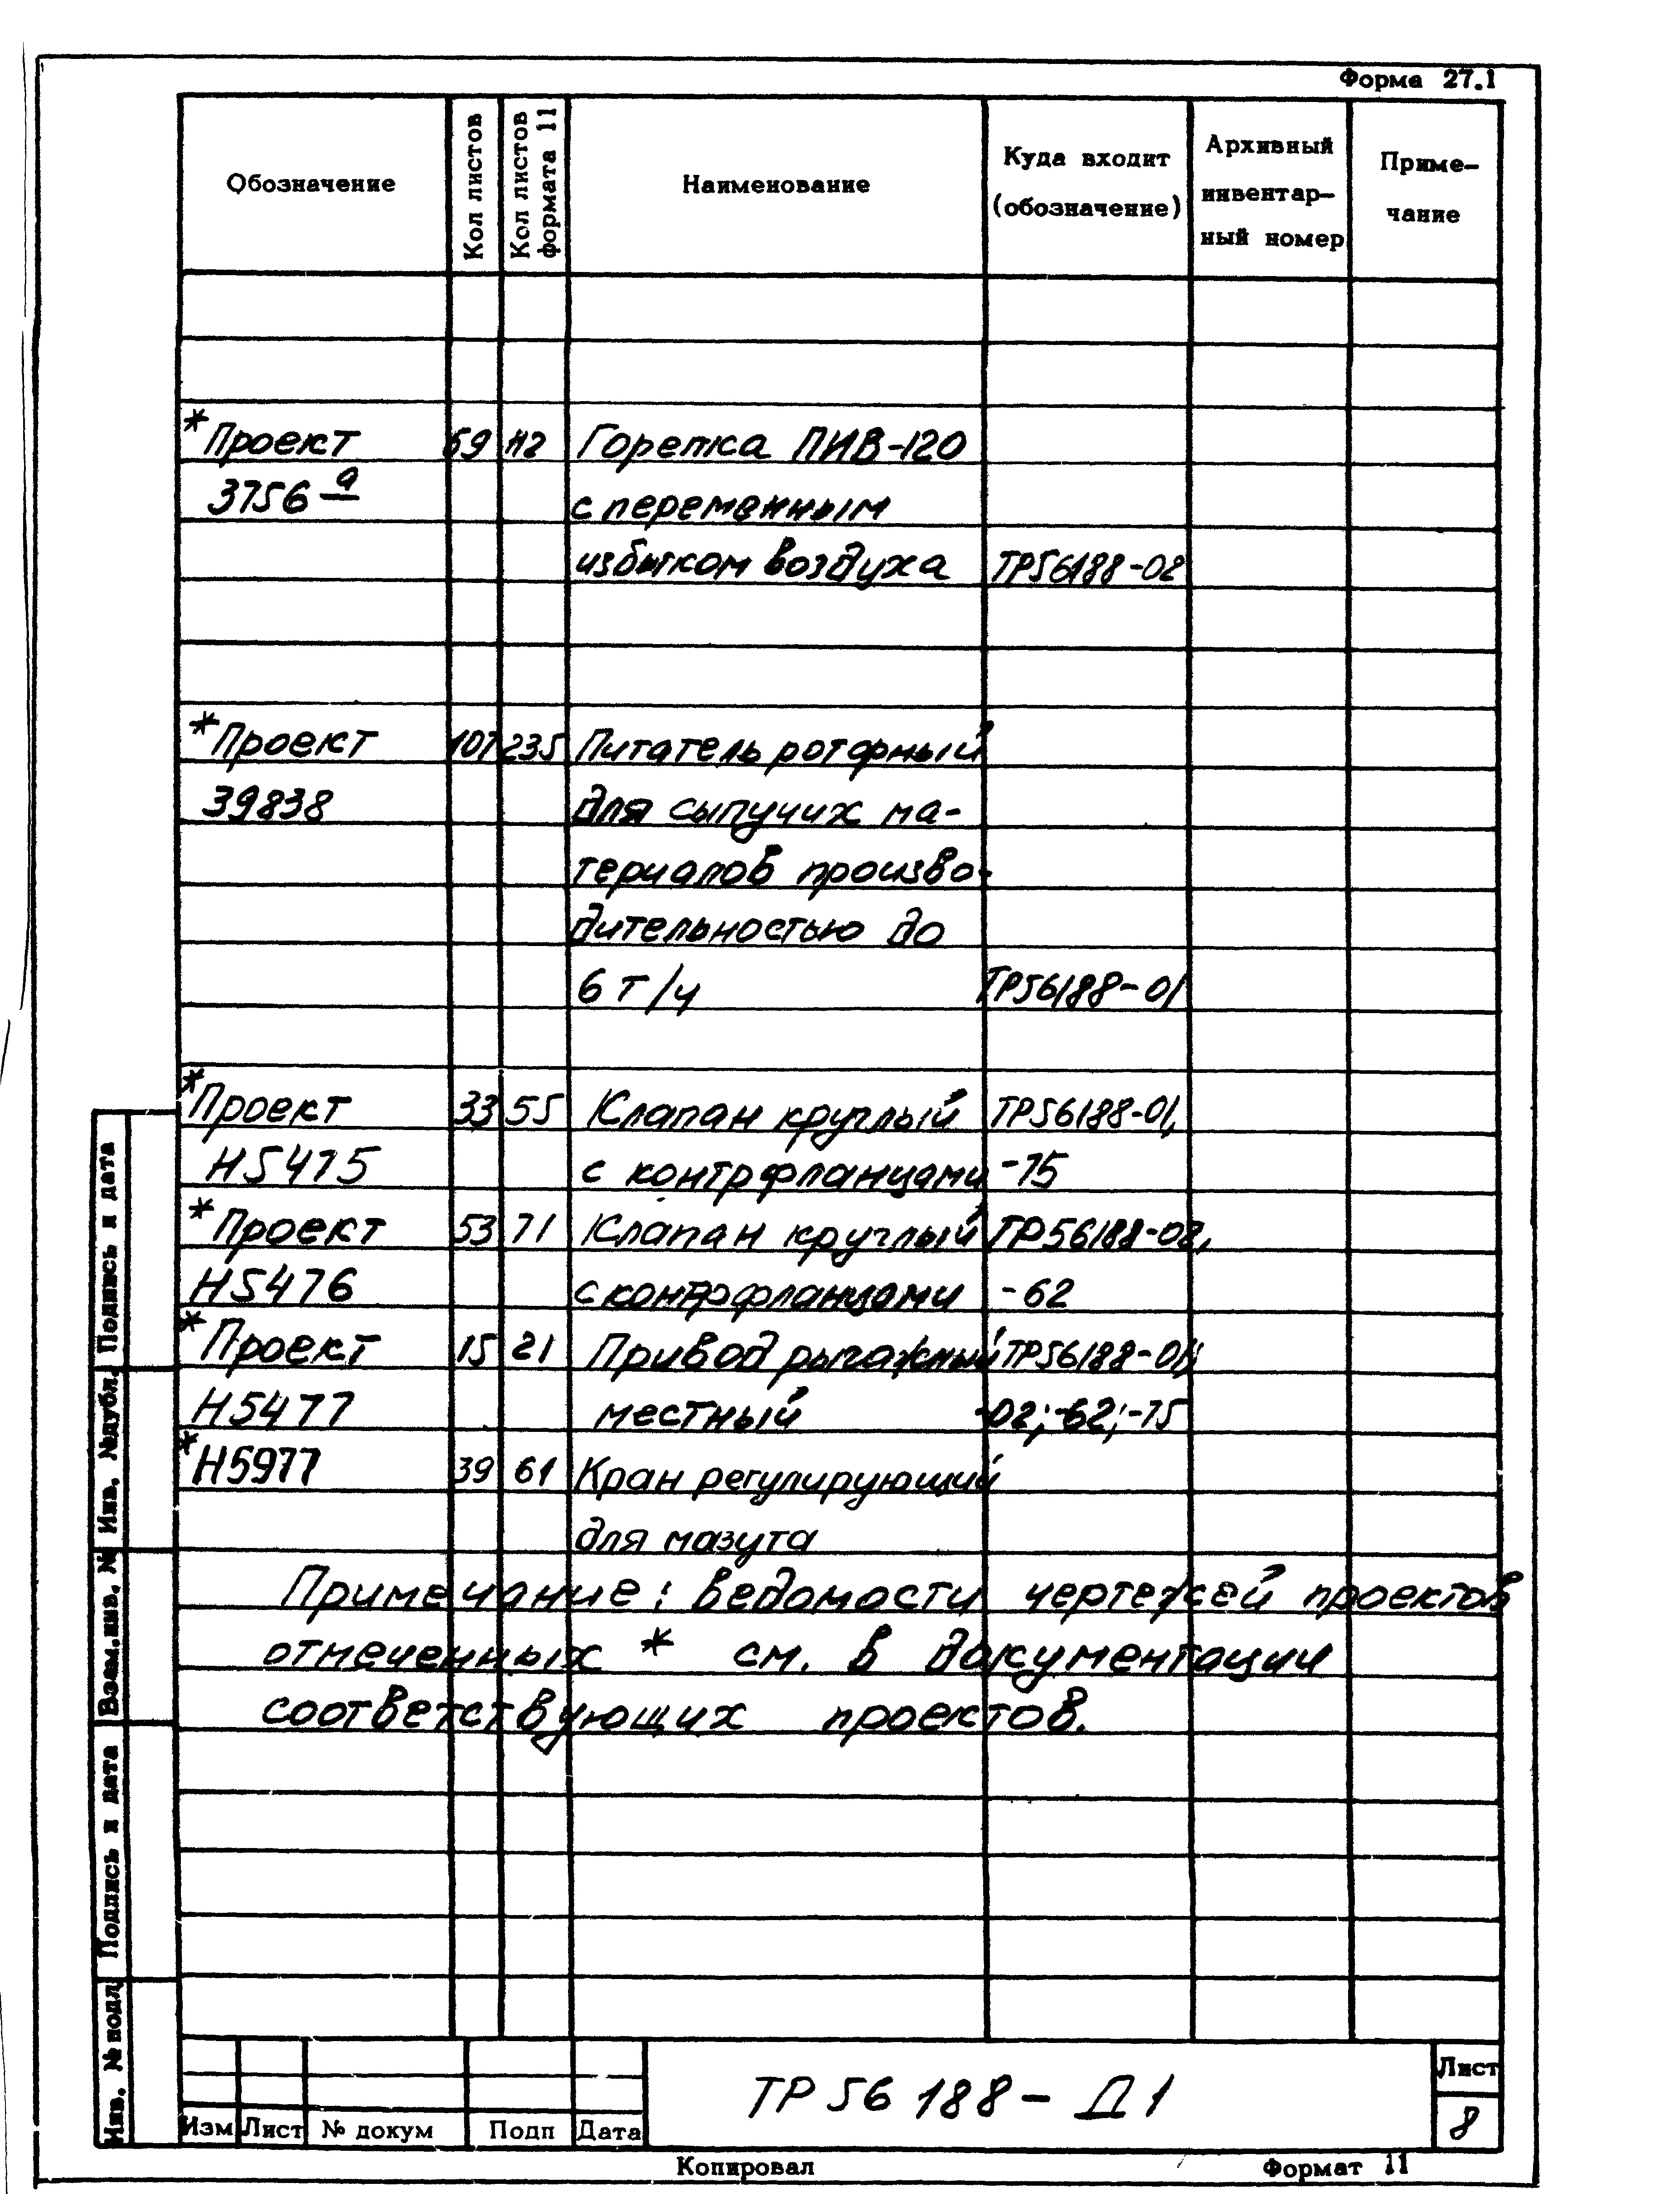 Форма 27.1
Обозначение
Кол листов
Кол листов
формата 11
Наименование
Куда входит
(обозначение)
Архивный
инвентар-
ный номер
Приме-
чание
*Проект 69 Горелка ПИВ-120
3756 а с переменным
избытком воздуха ТР56188-02
*Проект 107 235 Питатель роторный
39838 для сыпучих ма-
териалов произво-
дительностью до
6 т/ч ТР56188-01
*Проект 33 55 Клапан круглый ТР56188-01,
Н5475 с контрфланцами -75
*Проект 53 71 Клапан круглый ТР56188-02,
Н5476 с контрфланцами -62
*Проект 15 21 Привод рычажный ТР56188-01;
Н5477 местный -02; -62; -75
*Н5977 39 61 Кран регулирующий
для мазута
Примечание: ведомости чертежей проектов
отмеченных * см. в документации
соответствующих проектов.
Подпись и дата
Инв. №дубл.
Взам.инв. №
Подпись и дата
Инв. № подл
Изм Лист № докум Подп Дата
ТР 56 188 - Д1
Лист
8
Копировал Формат 11